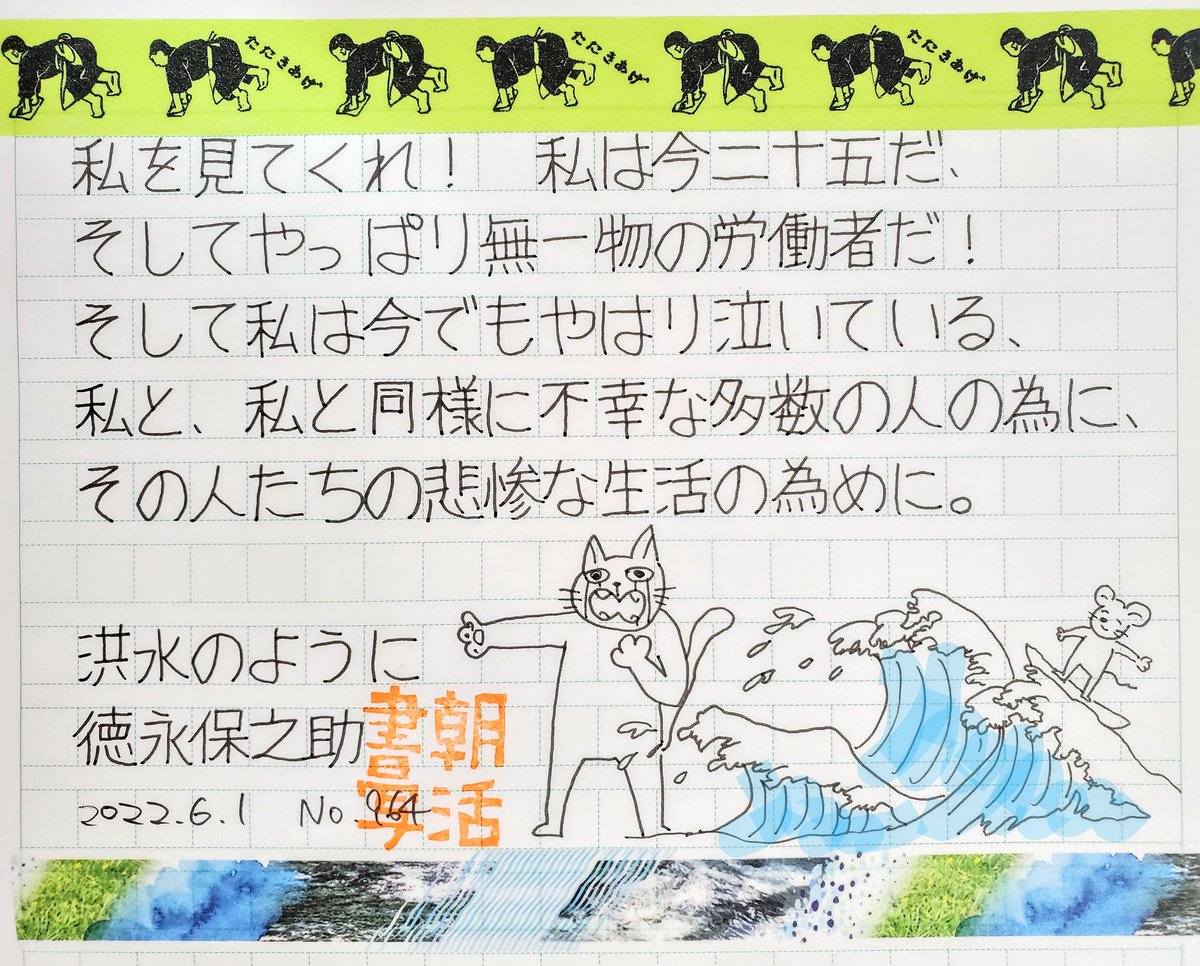 たたきあげ たたきあげ たたきあげ
私を見てくれ！　私は今二十五だ、
そしてやっぱり無一物の労働者だ！
そして私は今でもやはり泣いている、
私と、私と同様に不幸な多数の人の為に、
その人たちの悲惨な生活の為めに。
洪水のように
徳永保之助
2022.6.1　No.964
朝活書写